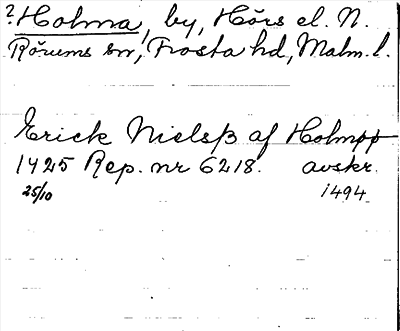 ? Holma, by, Hörs el. N.
Rörums sn, Frosta hd, Malm. l.
Erick Nielsß af Holmpp
1425 Rep. nr 6218. avskr.
25/10 1494